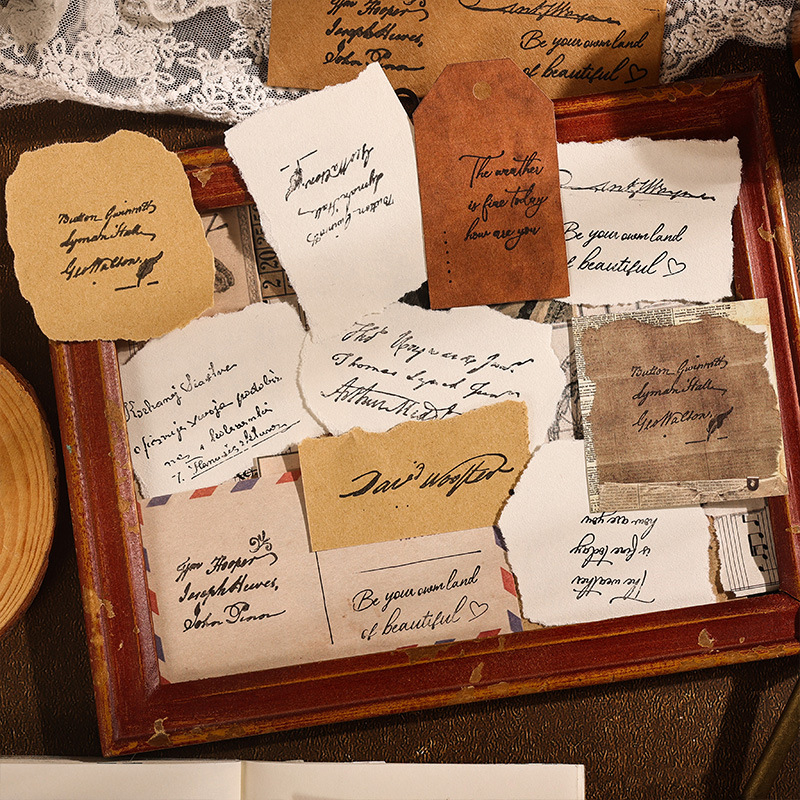 Wm Hooper
Joseph Hewes,
John Penn
Ant,y Wayne
Be your own land
of beautiful
Button Gwinnett
Lyman Hall
Geo Walton.
Button Gwinnett
Lyman Hall
Geo Walton.
The weather
is fine today
how are you
Ant,y Wayne
Be your own land
f beautiful
Thos Heyward Junr.
Thomas Lynch Junr.
Arthur Middl
Button Gwinnett
Lyman Hall
Geo Walton.
Kochanej
i
David Wooster
Wm Hooper
Joseph Hewes,
John Penn
Be your own land
of beautiful
The weather
is fine today
how are you